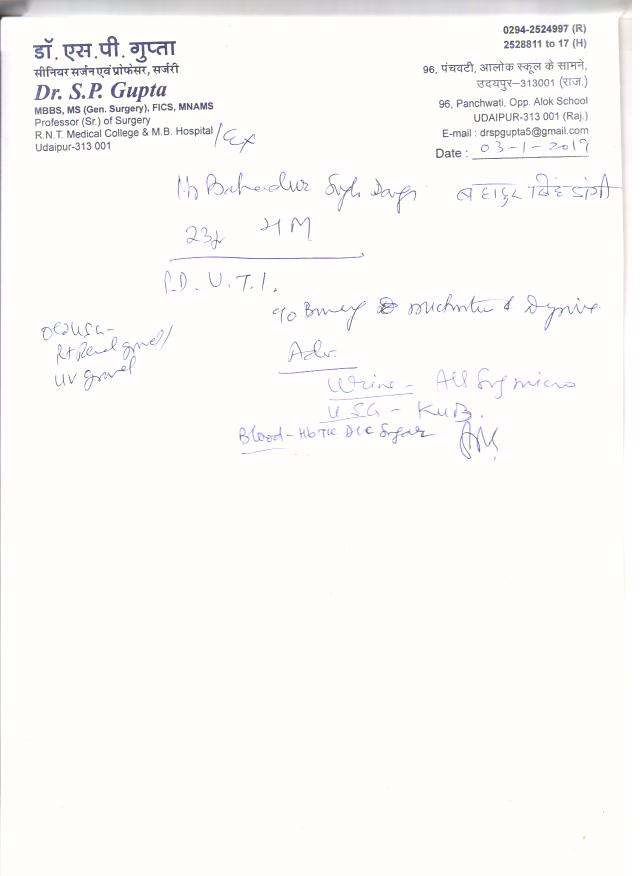 डॉ. एस.पी. गुप्ता
सीनियर सर्जन एवं प्रोफेसर, सर्जरी
Dr. S.P. Gupta
MBBS, MS (Gen. Surgery), FICS, MNAMS
Professor (Sr.) of Surgery
R.N.T. Medical College & M.B. Hospital /Ex
Udaipur-313 001
0294-2524997 (R)
2528811 to 17 (H)
96, पंचवटी, आलोक स्कूल के सामने,
उदयपुर–313001 (राज.)
96, Panchwati, Opp. Alok School
UDAIPUR-313 001 (Raj.)
E-mail : drspgupta5@gmail.com
Date : 03-1-2017
Bahadur Singh बहादुर सिंह डांगी
23y M
P.D. U.T.I.
c/o Burning micturition & Dysuria
Old USG-
Rt Renal gravel/
UV gravel
Adv.
Urine - Alb Sug micro
USG - KUB.
Blood - Hb TLC DLC Sugar